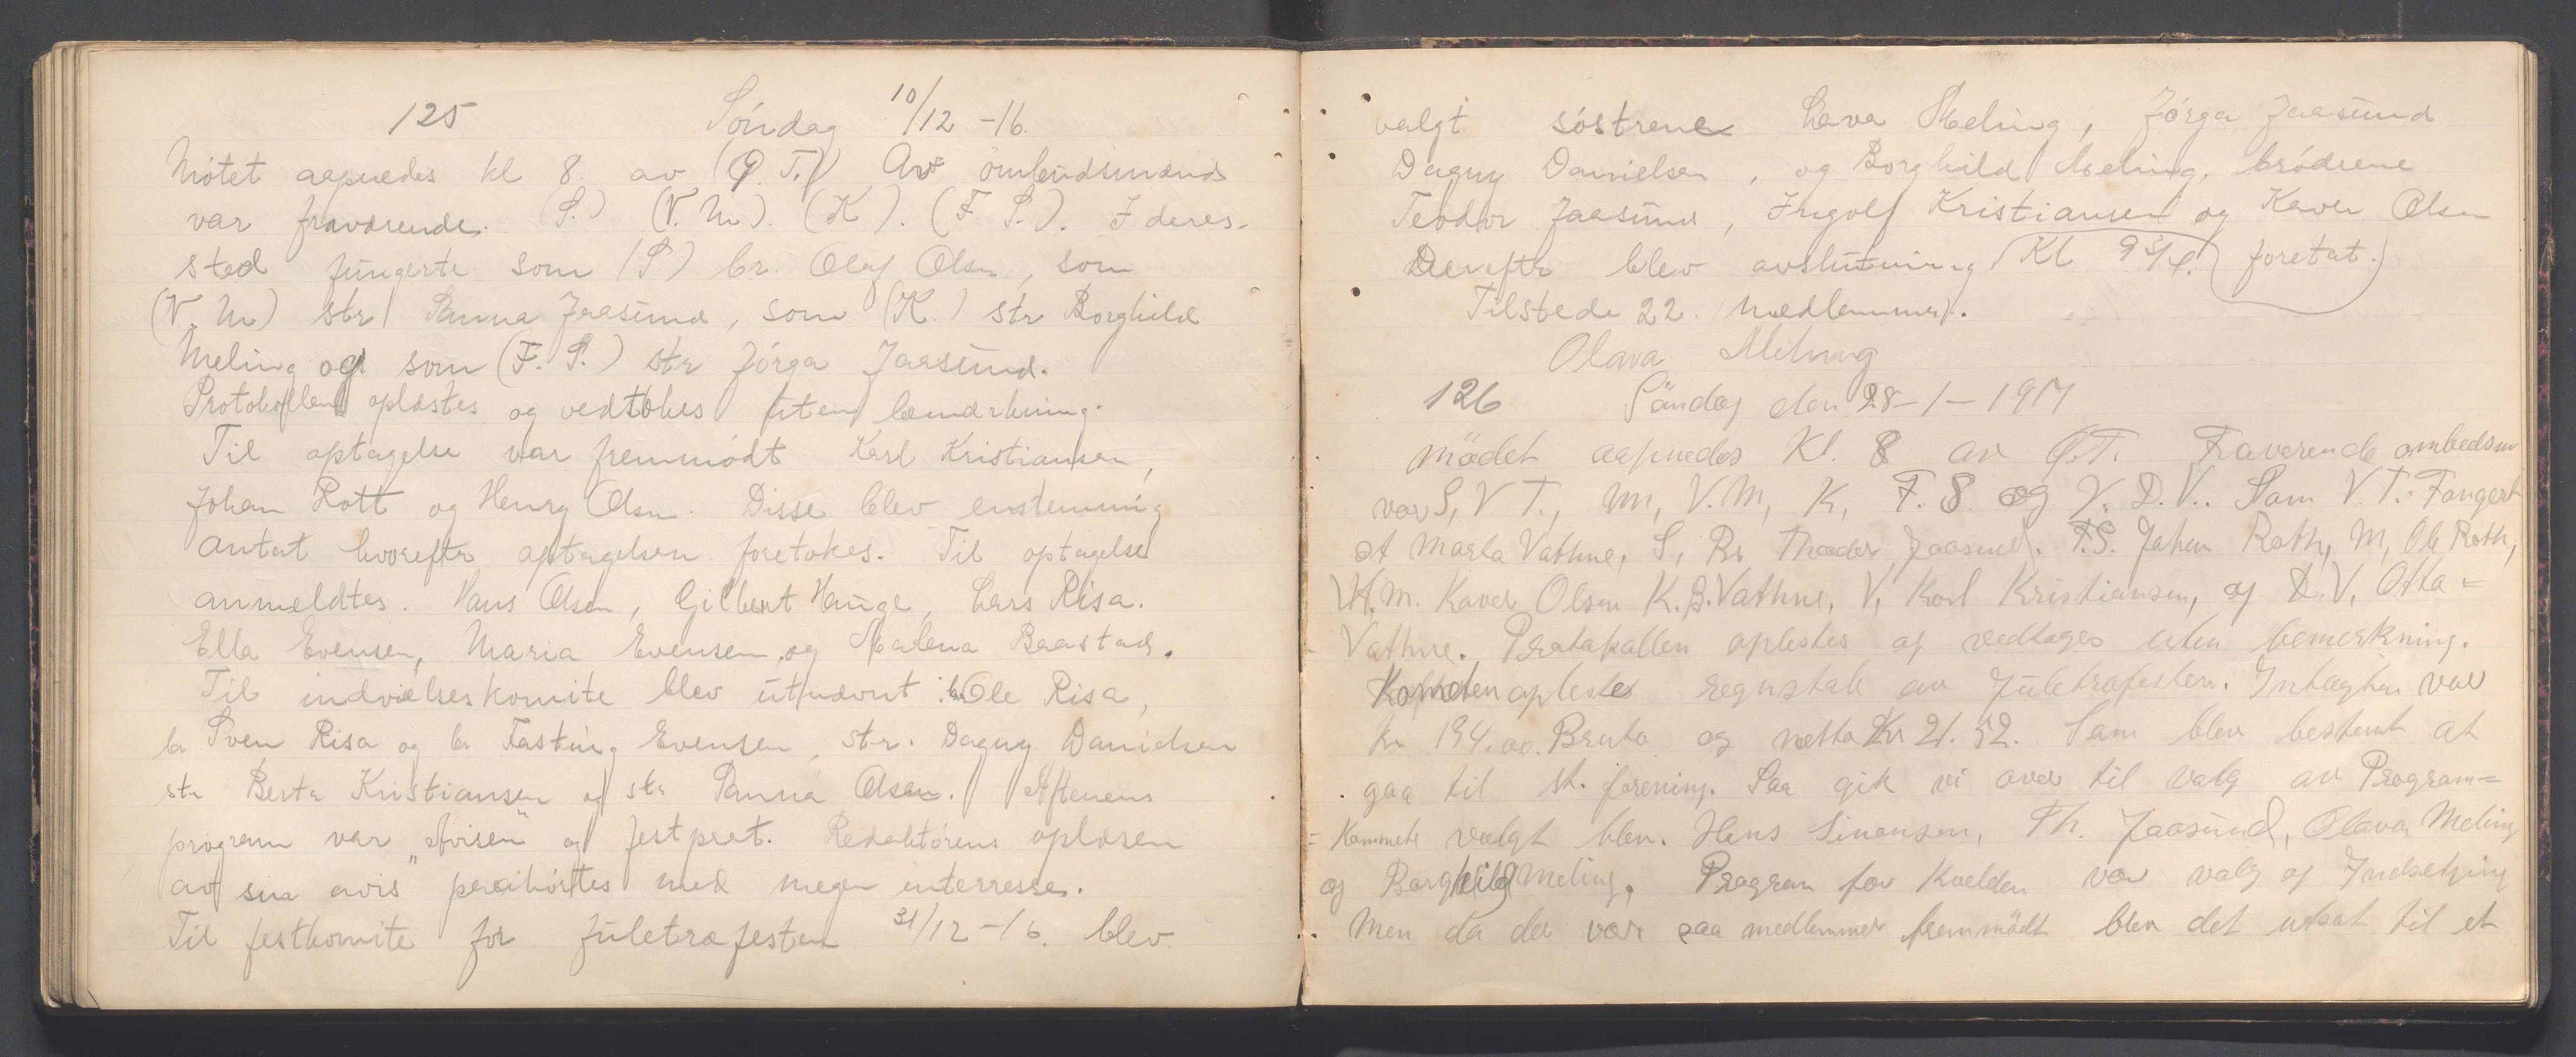 125 Söndag 10/12 -16.
Mötet aapnedes kl 8. av (Q. T.) Av ombudsmænd
var fraværende. (S.) (V. M). (K). (F. S.). I deres-
sted fungerte som (S) br. Olaf Olsen, som
(V. M) str Sanna Jaasund, som (K.) str Borghild
Meling og som (F. S.) str Jörga Jaasund.
Protokollen oplæstes og vedtokes uten bemærkning.
Til optagelse var fremmödt Karl Kristiansen,
Johan Rott og Henry Olsen. Disse blev enstemmig
antat hvorefter optagelsen foretokes. Til optagelse
anmeldtes. Hans Olsen, Gilbert Hauge, Lars Risa.
Ella Evensen, Maria Evensen, og Malena Baastad.
Til indvielseskomite blev utnævnt: br Ole Risa,
br Sven Risa og br Fasting Evensen, str. Dagny Danielsen
str Berta Kristiansen og str Sanna Olsen. Aftenens
program var „Avisen" og festprat. Redaktörens oplæsen
av sin avis paahörtes med megen interresse.
Til festkomite for juletræfesten 31/12 -16. blev
valgt söstrene Lava Meling, Jörga Jaasund
Dagny Danielsen, og Borghild Meling, brödrene
Teodor Jaasund, Ingolf Kristiansen og Kaver Olsen
Derefter blev avslutning (Kl 9 3/4.) foretat.
Tilstede 22. medlemmer.
Olava Meling
126 Söndag den 28-1-1917
mödet aapnedes Kl. 8 av Q.T. Fraverende ombedsm
var S, V. T., M, V.M, K, F.S. og V. D.V.. Som V.T. Fongert
et Marta Vathne, S, Br Theodor Jaasund. F.S. Johan Roth, M, Ole Roth,
V.M. Kaver Olsen K. B. Vathne, V, Karl Kristiansen, og D.V, Otta-
Vathne. Protokollen oplestes og vedtages uten bemerkning.
Komiteen oplestes regnskab av Juletrafesten. Intægten var
kr 194.00. Bruto og netto Kr 21.52. Som blev bestemt at
gaa til st. forening. Saa gik vi over til valg av Program=
= Kommete valgt blev. Hans Simonsen, Th. Jaasund, Olava Meling
og Borghild Meling. Program for Kvelden var valg og Indsetning
Men da der var saa medlemmer fremmödt blev det utsat til et